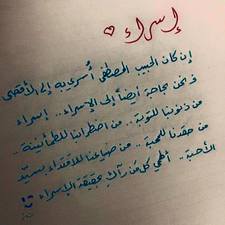 إسراء
إن كان الحبيب المصطفى أُسري به إلى الأقصى
فنحن بحاجة أيضاً إلى الإسراء .. إسراء
من ذنوبنا للتوبة .. من اضطرابنا للطمأنينة ..
من حقدنا للمحبة .. من ضياعنا للاقتداء بسيد
الأحبة .. أظن كل من رآكِ بحقيقة الإسراء